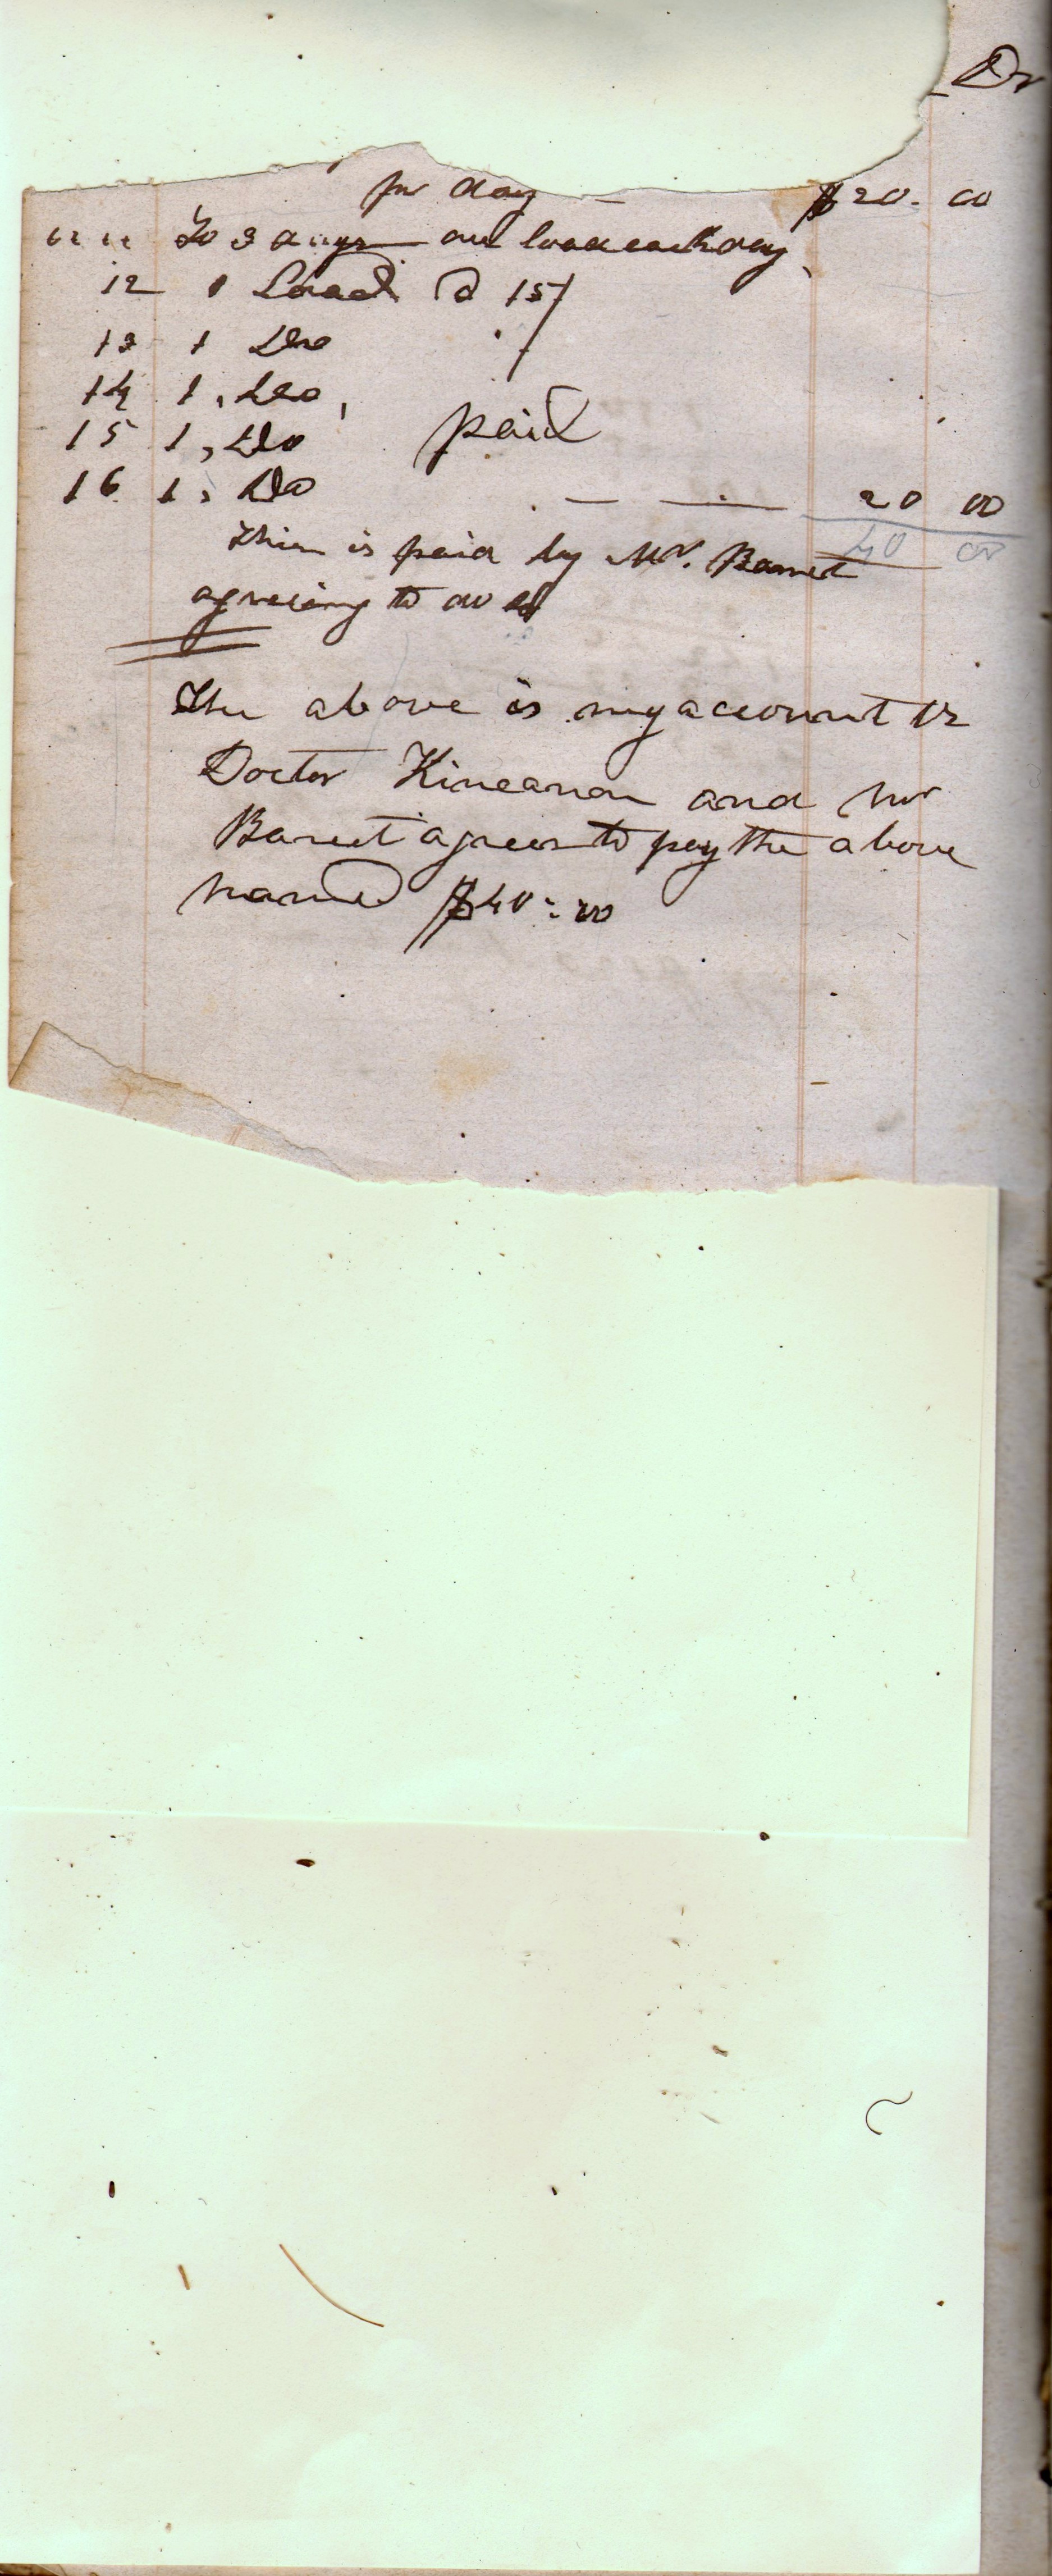 Dr
per day — $20. 00
" " To 3 days one load each day
12 1 Load @ 15/
13 1 Do
14 1, Do,
15 1, Do paid
16 1, Do — — 20 00
This is paid by Mr. Barret 40 00
agreeing to
The above is my account vs
Doctor Kincanon and Mr
Barret agrees to pay the above
named $40:00